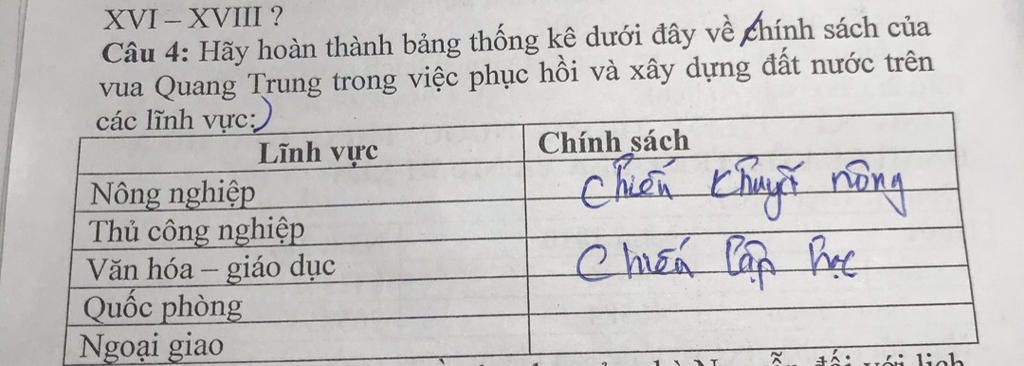 XVI – XVIII ?
Câu 4: Hãy hoàn thành bảng thống kê dưới đây về chính sách của
vua Quang Trung trong việc phục hồi và xây dựng đất nước trên
các lĩnh vực:
Lĩnh vực Chính sách
Nông nghiệp Chiếu khuyến nông
Thủ công nghiệp
Văn hóa – giáo dục Chiếu lập học
Quốc phòng
Ngoại giao
đối với lịch